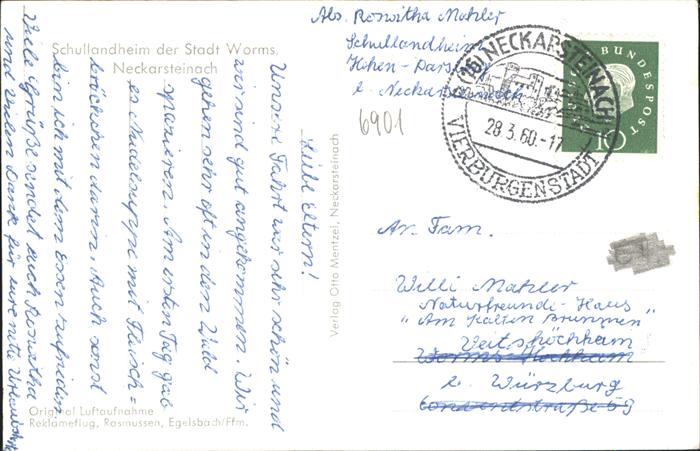 Schullandheim der Stadt Worms,
Neckarsteinach
Liebe Eltern!
Unsere Fahrt war sehr schön und
wir sind gut angekommen. Wir
gehen sehr oft in den Wald
spazieren. Am ersten Tag gab
es Nudelsuppe mit Fleisch=
bröckchen darin. Auch sonst
bin ich mit dem Essen zufrieden
Viele Grüße sendet euch Roswitha
und vielen Dank für eure
Original Luftaufnahme
Reklameflug, Rasmussen, Egelsbach/Ffm.
Verlag Otto Mentzel, Neckarsteinach
Abs. Roswitha Mahler
Schullandheim
6901
NECKARSTEINACH
28.3.60.-17
VIERBURGENSTADT
DEUTSCHE BUNDESPOST
10
An Fam.
Willi Mahler
Naturfreunde-Haus
"Am kalten Brunnen"
Veitshöchheim
Worms-Hochheim
b. Würzburg